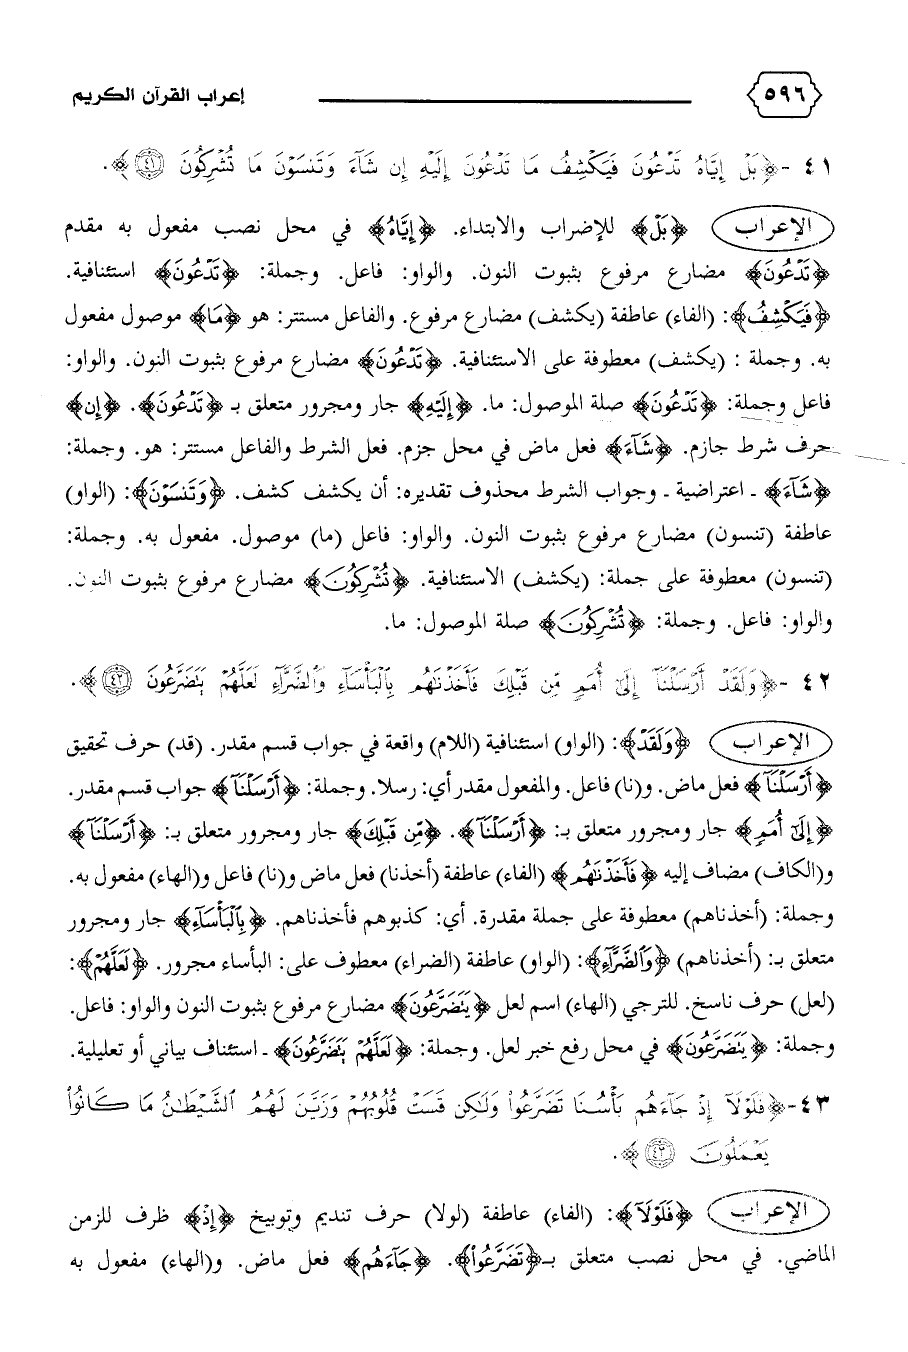 ٥٩٦ إعراب القرآن الكريم
٤١ -﴿بَلْ إِيَّاهُ تَدْعُونَ فَيَكْشِفُ مَا تَدْعُونَ إِلَيْهِ إِن شَآءَ وَتَنسَوْنَ مَا تُشْرِكُونَ ﴿٤١﴾﴾.
الإعراب ﴿بَلْ﴾ للإضراب والابتداء. ﴿إِيَّاهُ﴾ في محل نصب مفعول به مقدم
﴿تَدْعُونَ﴾ مضارع مرفوع بثبوت النون. والواو: فاعل. وجملة: ﴿تَدْعُونَ﴾ استئنافية.
﴿فَيَكْشِفُ﴾: (الفاء) عاطفة (يكشف) مضارع مرفوع. والفاعل مستتر: هو ﴿مَا﴾ موصول مفعول
به. وجملة : (يكشف) معطوفة على الاستئنافية. ﴿تَدْعُونَ﴾ مضارع مرفوع بثبوت النون. والواو:
فاعل وجملة: ﴿تَدْعُونَ﴾ صلة الموصول: ما. ﴿إِلَيْهِ﴾ جار ومجرور متعلق بـ ﴿تَدْعُونَ﴾. ﴿إِن﴾
حرف شرط جازم. ﴿شَآءَ﴾ فعل ماض في محل جزم. فعل الشرط والفاعل مستتر: هو. وجملة:
﴿شَآءَ﴾ ـ اعتراضية ـ وجواب الشرط محذوف تقديره: أن يكشف كشف. ﴿وَتَنسَوْنَ﴾: (الواو)
عاطفة (تنسون) مضارع مرفوع بثبوت النون. والواو: فاعل (ما) موصول. مفعول به. وجملة:
(تنسون) معطوفة على جملة: (يكشف) الاستئنافية. ﴿تُشْرِكُونَ﴾ مضارع مرفوع بثبوت النون.
والواو: فاعل. وجملة: ﴿تُشْرِكُونَ﴾ صلة الموصول: ما.
٤٢ -﴿وَلَقَدْ أَرْسَلْنَآ إِلَىٰٓ أُمَمٍ مِّن قَبْلِكَ فَأَخَذْنَٰهُم بِالْبَأْسَآءِ وَالضَّرَّآءِ لَعَلَّهُمْ يَتَضَرَّعُونَ ﴿٤٢﴾﴾.
الإعراب ﴿وَلَقَدْ﴾: (الواو) استئنافية (اللام) واقعة في جواب قسم مقدر. (قد) حرف تحقيق
﴿أَرْسَلْنَآ﴾ فعل ماض. و(نا) فاعل. والمفعول مقدر أي: رسلا. وجملة: ﴿أَرْسَلْنَآ﴾ جواب قسم مقدر.
﴿إِلَىٰٓ أُمَمٍ﴾ جار ومجرور متعلق بـ: ﴿أَرْسَلْنَآ﴾. ﴿مِّن قَبْلِكَ﴾ جار ومجرور متعلق بـ: ﴿أَرْسَلْنَآ﴾
و(الكاف) مضاف إليه ﴿فَأَخَذْنَٰهُم﴾ (الفاء) عاطفة (أخذنا) فعل ماض و(نا) فاعل و(الهاء) مفعول به.
وجملة: (أخذناهم) معطوفة على جملة مقدرة. أي: كذبوهم فأخذناهم. ﴿بِالْبَأْسَآءِ﴾ جار ومجرور
متعلق بـ: (أخذناهم) ﴿وَالضَّرَّآءِ﴾: (الواو) عاطفة (الضراء) معطوف على: البأساء مجرور. ﴿لَعَلَّهُمْ﴾:
(لعل) حرف ناسخ. للترجي (الهاء) اسم لعل ﴿يَتَضَرَّعُونَ﴾ مضارع مرفوع بثبوت النون والواو: فاعل.
وجملة: ﴿يَتَضَرَّعُونَ﴾ في محل رفع خبر لعل. وجملة: ﴿لَعَلَّهُمْ يَتَضَرَّعُونَ﴾ ـ استئناف بياني أو تعليلية.
٤٣ -﴿فَلَوْلَآ إِذْ جَآءَهُم بَأْسُنَا تَضَرَّعُوا۟ وَلَٰكِن قَسَتْ قُلُوبُهُمْ وَزَيَّنَ لَهُمُ الشَّيْطَٰنُ مَا كَانُوا۟
يَعْمَلُونَ ﴿٤٣﴾﴾.
الإعراب ﴿فَلَوْلَآ﴾: (الفاء) عاطفة (لولا) حرف تنديم وتوبيخ ﴿إِذْ﴾ ظرف للزمن
الماضي. في محل نصب متعلق بـ﴿تَضَرَّعُوا۟﴾. ﴿جَآءَهُم﴾ فعل ماض. و(الهاء) مفعول به